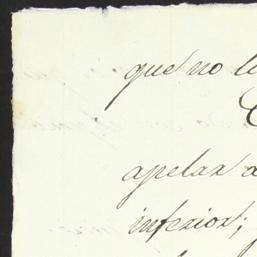 que no l
apelar a
inferior;